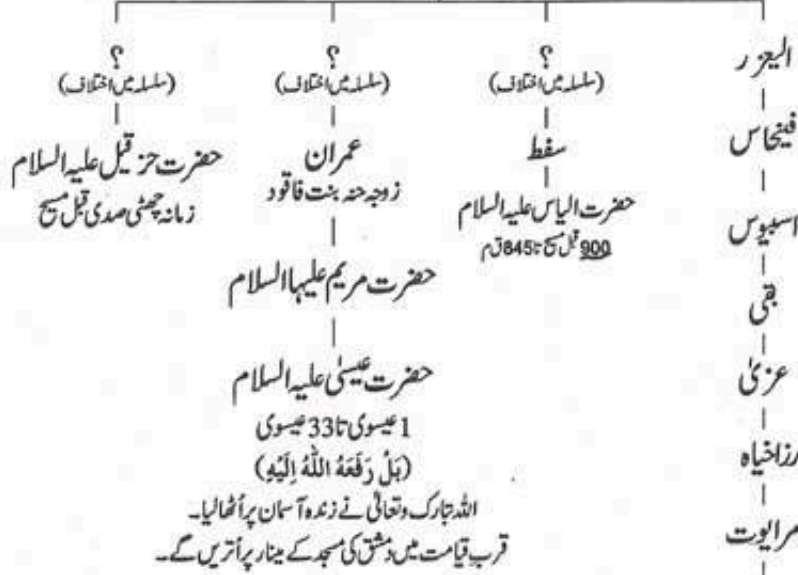 الیعزر
فینحاس
اسبیوس
بقی
عزیٰ
رزاخیاہ
مرایوت
؟
(سلسلہ میں اختلاف)
سفط
حضرت الیاس علیہ السلام
900 قبل مسیح تا 845 ق م
؟
(سلسلہ میں اختلاف)
عمران
زوجہ حنہ بنت فاقود
حضرت مریم علیہا السلام
حضرت عیسیٰ علیہ السلام
1 عیسوی تا 33 عیسوی
(بَلْ رَفَعَهُ اللّٰهُ اِلَیْهِ)
اللہ تبارک وتعالیٰ نے زندہ آسمان پر اُٹھا لیا۔
قربِ قیامت میں دمشق کی مسجد کے مینار پر اُتریں گے۔
؟
(سلسلہ میں اختلاف)
حضرت حزقیل علیہ السلام
زمانہ چھٹی صدی قبل مسیح